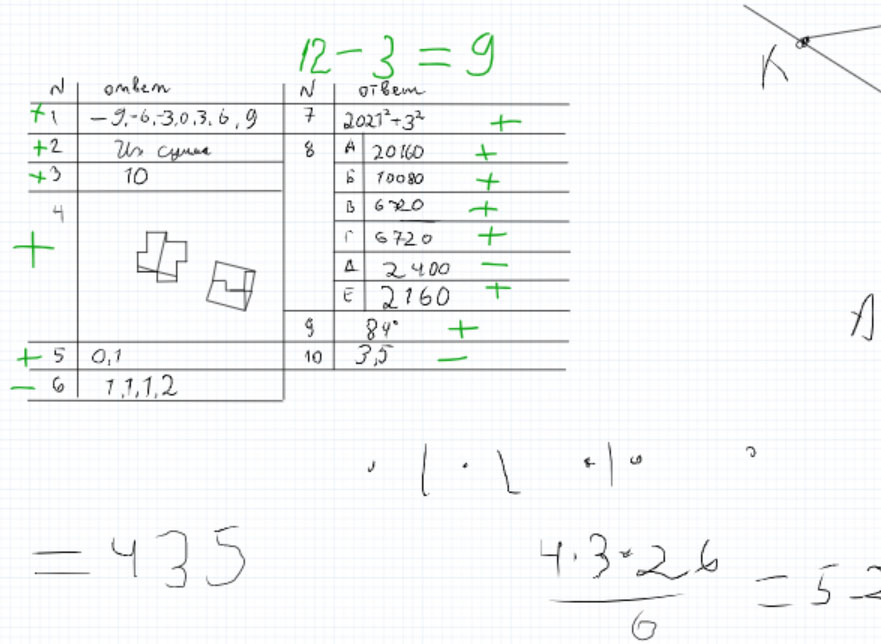 12 - 3 = 9
N ответ N ответ
+ 1 -9,-6,-3,0,3,6,9 7 2021²+3² +
+ 2 Из суммы 8 А 20160 +
+ 3 10 Б 10080 +
4 В 6720 +
+ Г 6720 +
Д 2400 -
Е 2160 +
9 84° +
+ 5 0,1 10 3,5 -
- 6 1,1,1,2
K
A
= 435
4·3·26
6
= 52